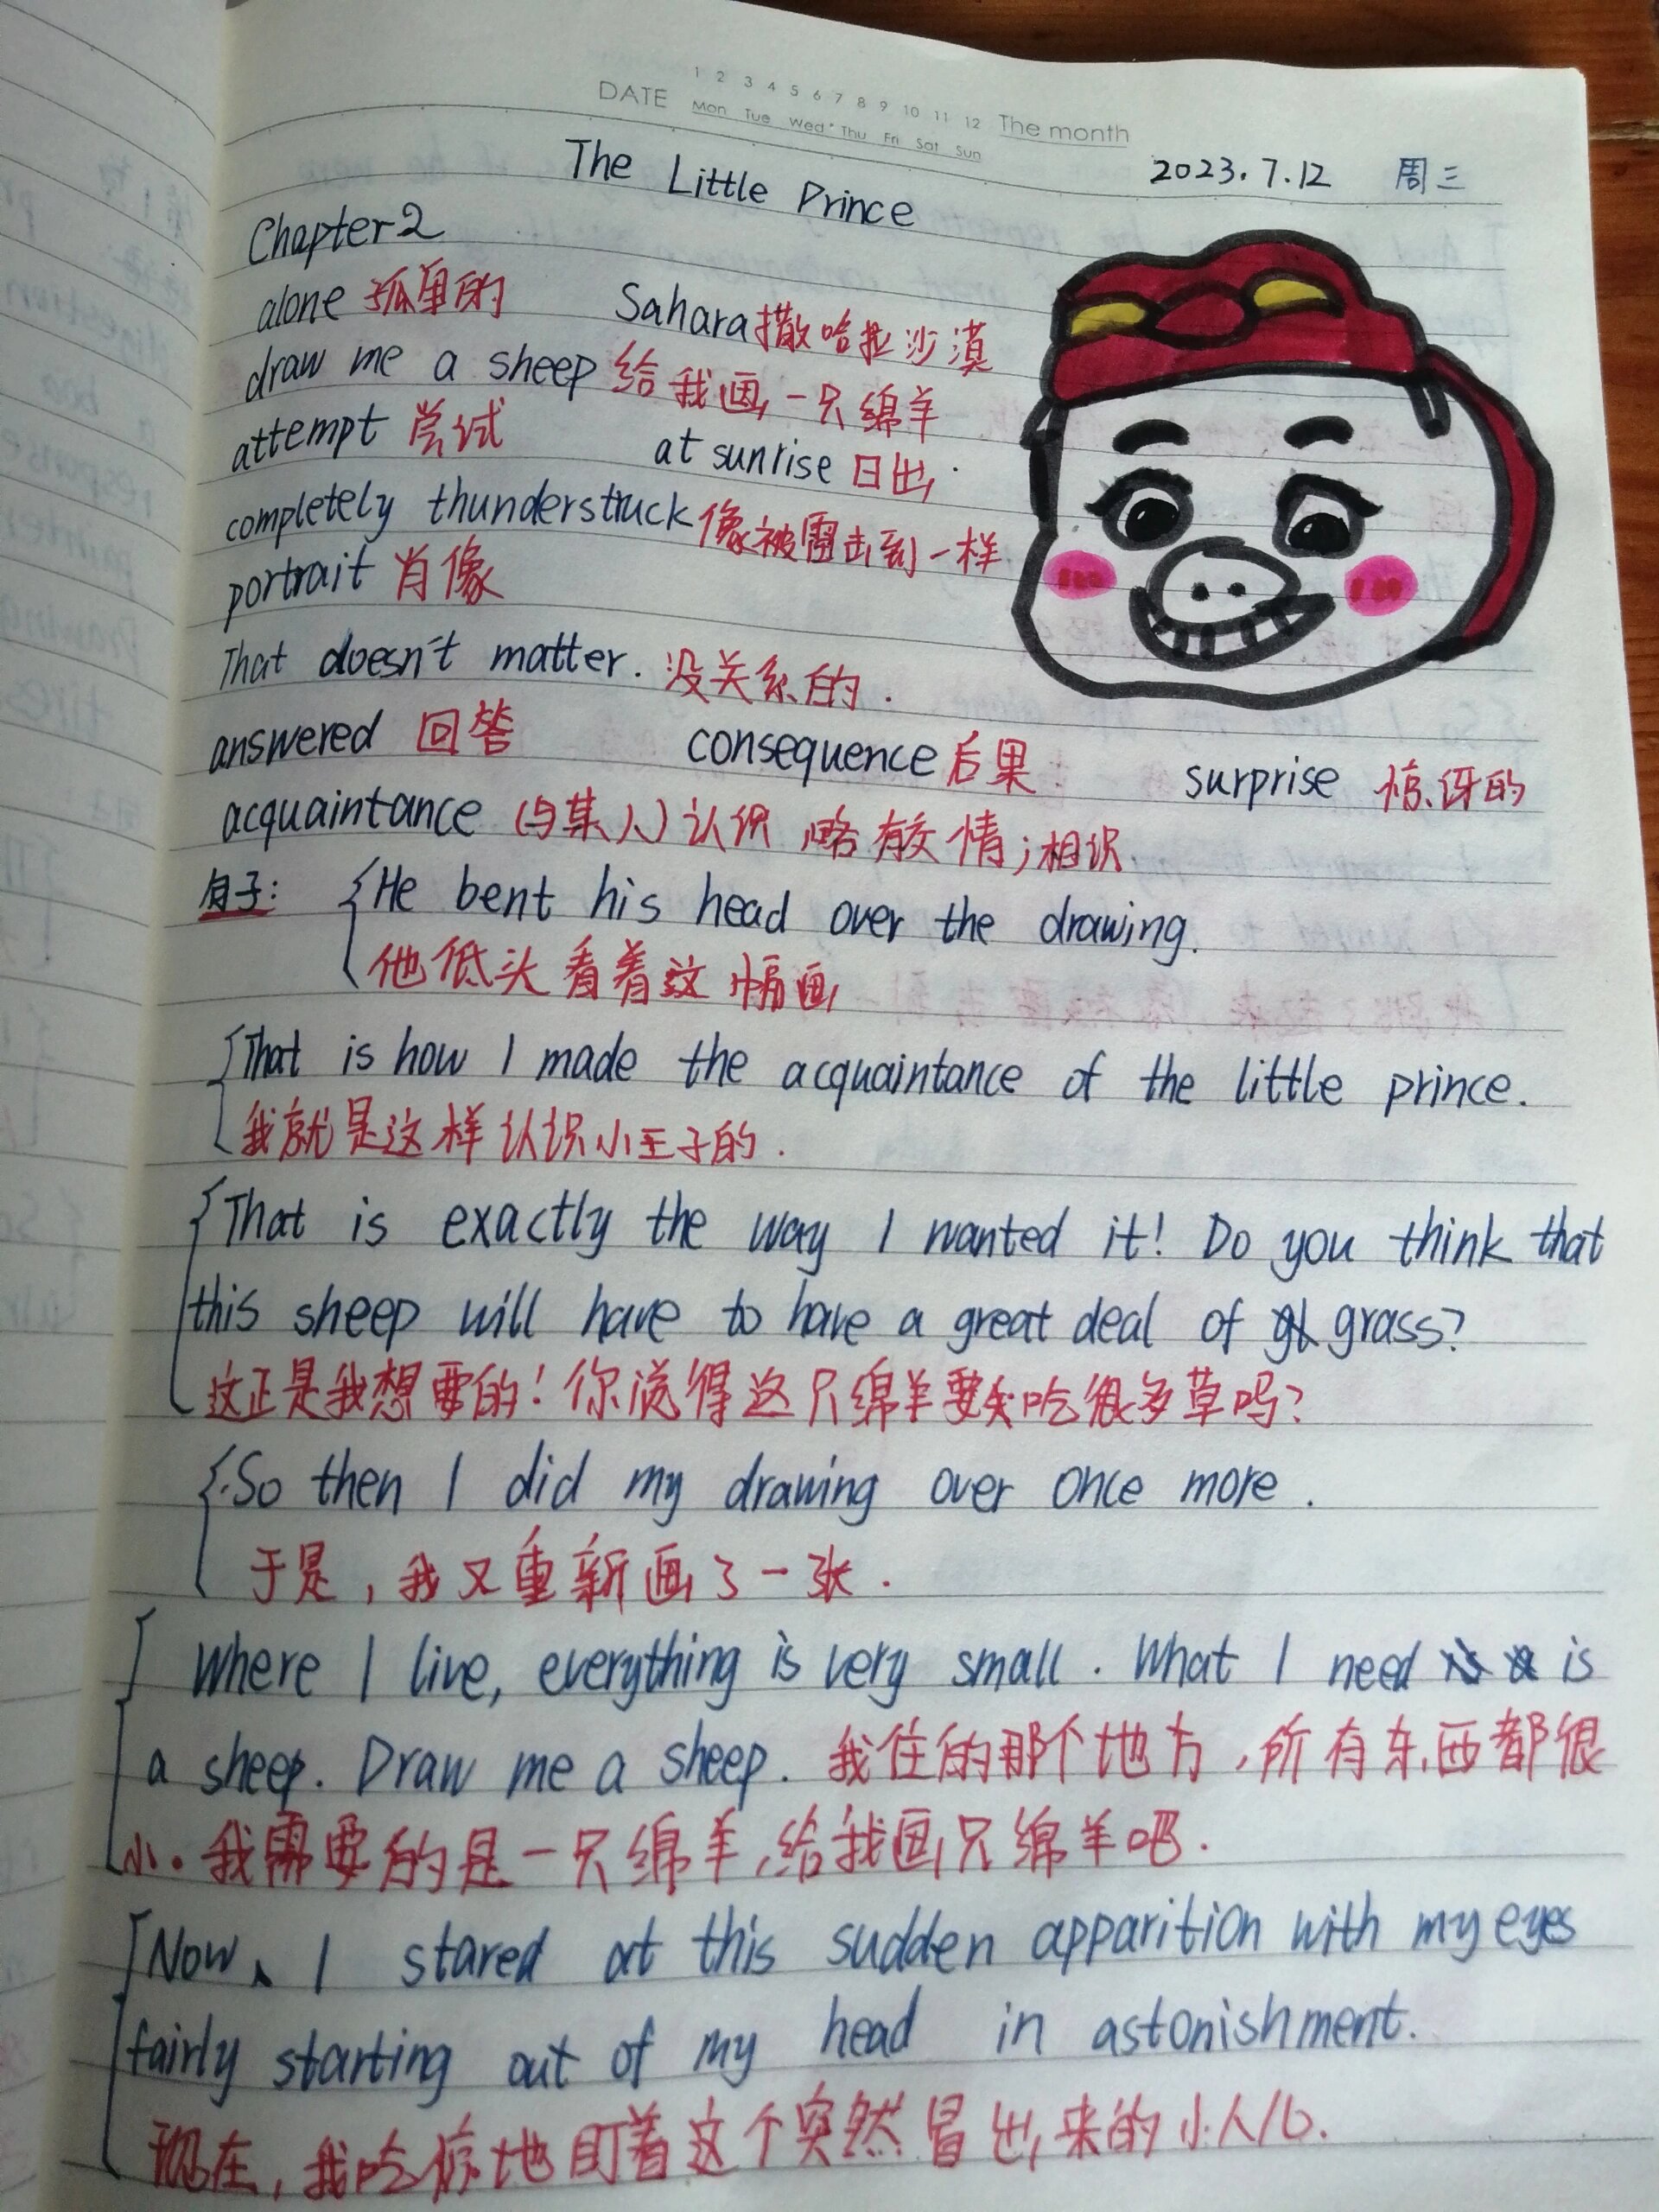 DATE 1 2 3 4 5 6 7 8 9 10 11 12 The month
Mon Tue Wed Thu Fri Sat Sun
The Little Prince 2023.7.12 周三
Chapter2
alone 孤单的 Sahara撒哈拉沙漠
draw me a sheep 给我画一只绵羊
attempt 尝试 at sunrise 日出
completely thunderstruck 像被雷击到一样
portrait 肖像
That doesn't matter. 没关系的.
answered 回答 consequence 后果 surprise 惊讶的
acquaintance (与某人)认识 略有交情;相识
句子: He bent his head over the drawing.
他低头看着这幅画
That is how I made the acquaintance of the little prince.
我就是这样认识小王子的.
That is exactly the way I wanted it! Do you think that
this sheep will have to have a great deal of grass?
这正是我想要的!你觉得这只绵羊要吃很多草吗?
So then I did my drawing over once more.
于是,我又重新画了一张.
Where I live, everything is very small. What I need is
a sheep. Draw me a sheep. 我住的那个地方,所有东西都很
小.我需要的是一只绵羊,给我画只绵羊吧.
Now, I stared at this sudden apparition with my eyes
fairly starting out of my head in astonishment.
现在,我吃惊地盯着这个突然冒出来的小人儿.